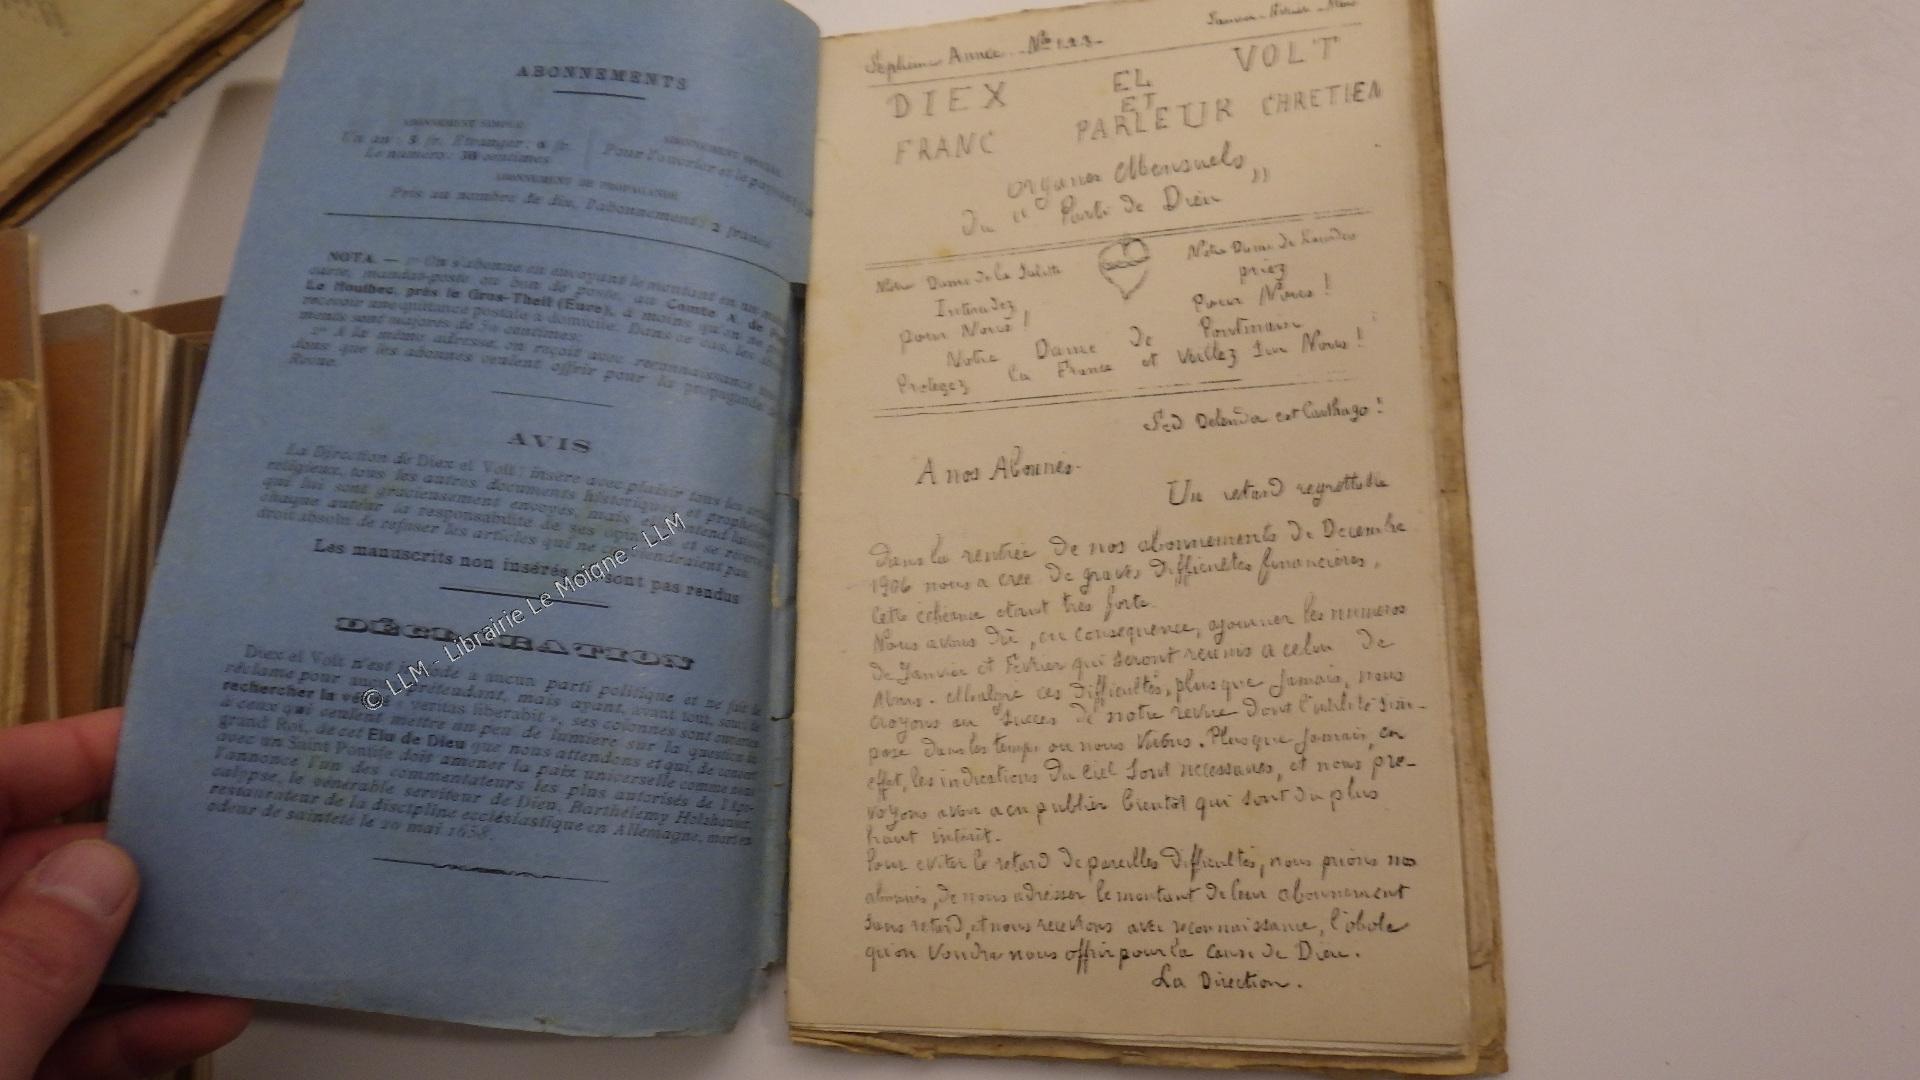 ABONNEMENTS
ABONNEMENT SIMPLE
Un an : 5 fr. Etranger : 6 fr.
Le numéro : 50 centimes
Pour l'ouvrier et le paysan
ABONNEMENT DE PROPAGANDE
Pris au nombre de dix, l'abonnement : 2 francs
NOTA. — 1° On s'abonne en envoyant le montant en un
carte, mandat-poste ou bon de poste, au Comte A. de
Le Houlbec, près le Gros-Theil (Eure), à moins qu'on ne
recevoir une quittance postale à domicile. Dans ce cas, les
ments sont majorés de 50 centimes;
2° A la même adresse, on reçoit avec reconnaissance
dons que les abonnés veulent offrir pour la propagande de
Revue.
AVIS
La Direction de Diex el Volt ! insère avec plaisir tous les
religieux, tous les autres documents historiques et prophétiques
qui lui sont gracieusement envoyés, mais entend laisser
chaque auteur la responsabilité de ses opinions et se réserve
droit absolu de refuser les articles qui ne conviendraient pas.
Les manuscrits non insérés ne sont pas rendus
DÉCLARATION
Diex el Volt n'est inféodé à aucun parti politique et ne fait de
réclame pour aucun prétendant, mais ayant, avant tout, souci de
rechercher la vérité « veritas liberabit », ses colonnes sont ouvertes
à ceux qui veulent mettre un peu de lumière sur la question du
grand Roi, de cet Elu de Dieu que nous attendons et qui, de concert
avec un Saint Pontife doit amener la paix universelle comme nous
l'annonce l'un des commentateurs les plus autorisés de l'Apo-
calypse, le vénérable serviteur de Dieu, Barthélemy Holzhauser,
restaurateur de la discipline ecclésiastique en Allemagne, mort en
odeur de sainteté le 20 mai 1658.
© LLM - Librairie Le Moigne - LLM
Septième Année - Nos 1.2.3.
Janvier - Février - Mars
DIEX EL VOLT
ET
FRANC PARLEUR CHRETIEN
Organes Mensuels
du "Parti de Dieu"
Notre Dame de la Salette
Intercédez
pour Nous !
Notre Dame de Lourdes
priez
pour Nous !
Notre Dame de Pontmain
Protegez la France et Veillez sur Nous !
Sed Delenda est Carthago !
A nos Abonnés.
Un retard regrettable
dans la rentrée de nos abonnements de Decembre
1906 nous a créé de graves difficultés financières,
cette échéance étant très forte.
Nous avons dû, en conséquence, ajourner les numéros
de Janvier et Février qui seront réunis à celui de
Mars. Malgré ces difficultés, plus que jamais, nous
croyons au succès de notre revue dont l'utilité s'im-
pose dans les temps où nous vivons. Plus que jamais, en
effet, les indications du ciel sont nécessaires, et nous pré-
voyons avoir à en publier bientôt qui sont du plus
haut intérêt.
Pour éviter le retard de pareilles difficultés, nous prions nos
abonnés, de nous adresser le montant de leur abonnement
sans retard, et nous recevrons avec reconnaissance, l'obole
qu'on voudra nous offrir pour la cause de Dieu.
La Direction.